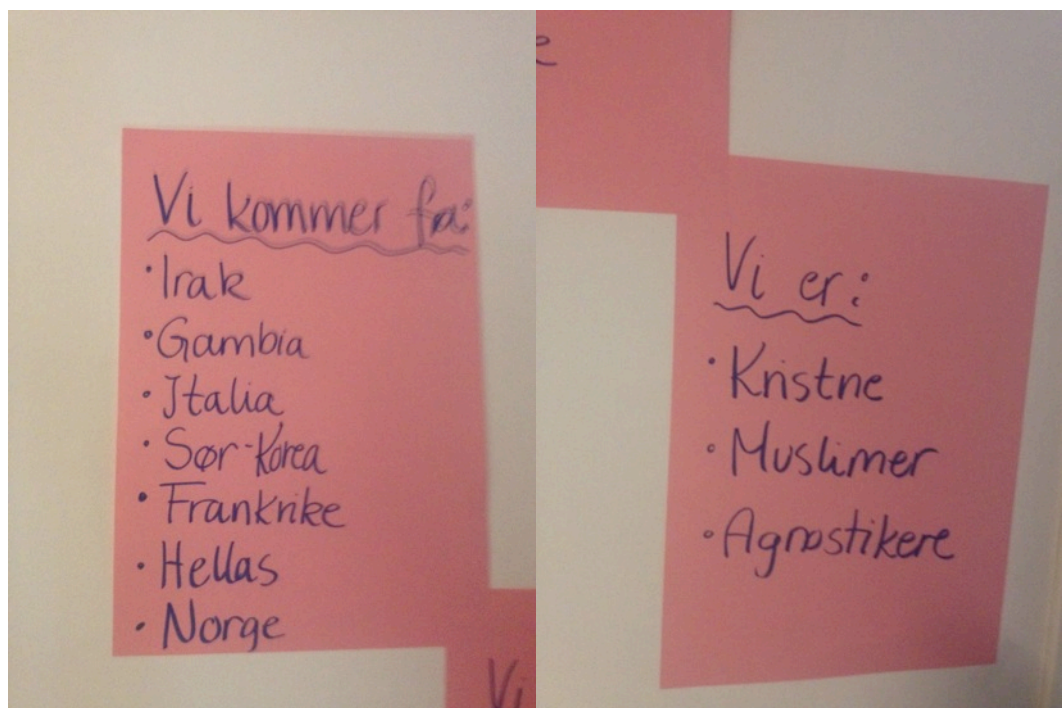 Vi kommer fra:
• Irak
• Gambia
• Italia
• Sør-Korea
• Frankrike
• Hellas
• Norge
Vi
Vi er:
• Kristne
• Muslimer
• Agnostikere